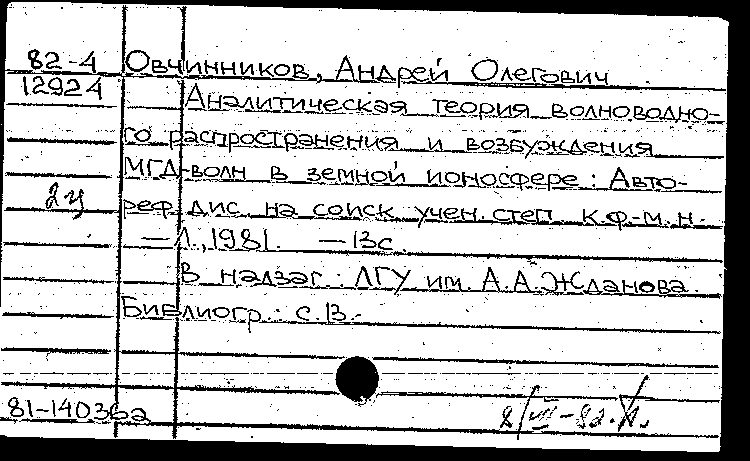 82-4 Овчинников, Андрей Олегович
12924 Аналитическая теория волноводно-
го распространения и возбуждения
МГД-волн в земной ионосфере: Авто-
2ц реф. дис. на соиск. учен. степ. к.ф.-м.н.
— Л., 1981. — 13с.
В надзаг.: ЛГУ им. А.А. Жданова.
Библиогр.: с.13.
81-14036а